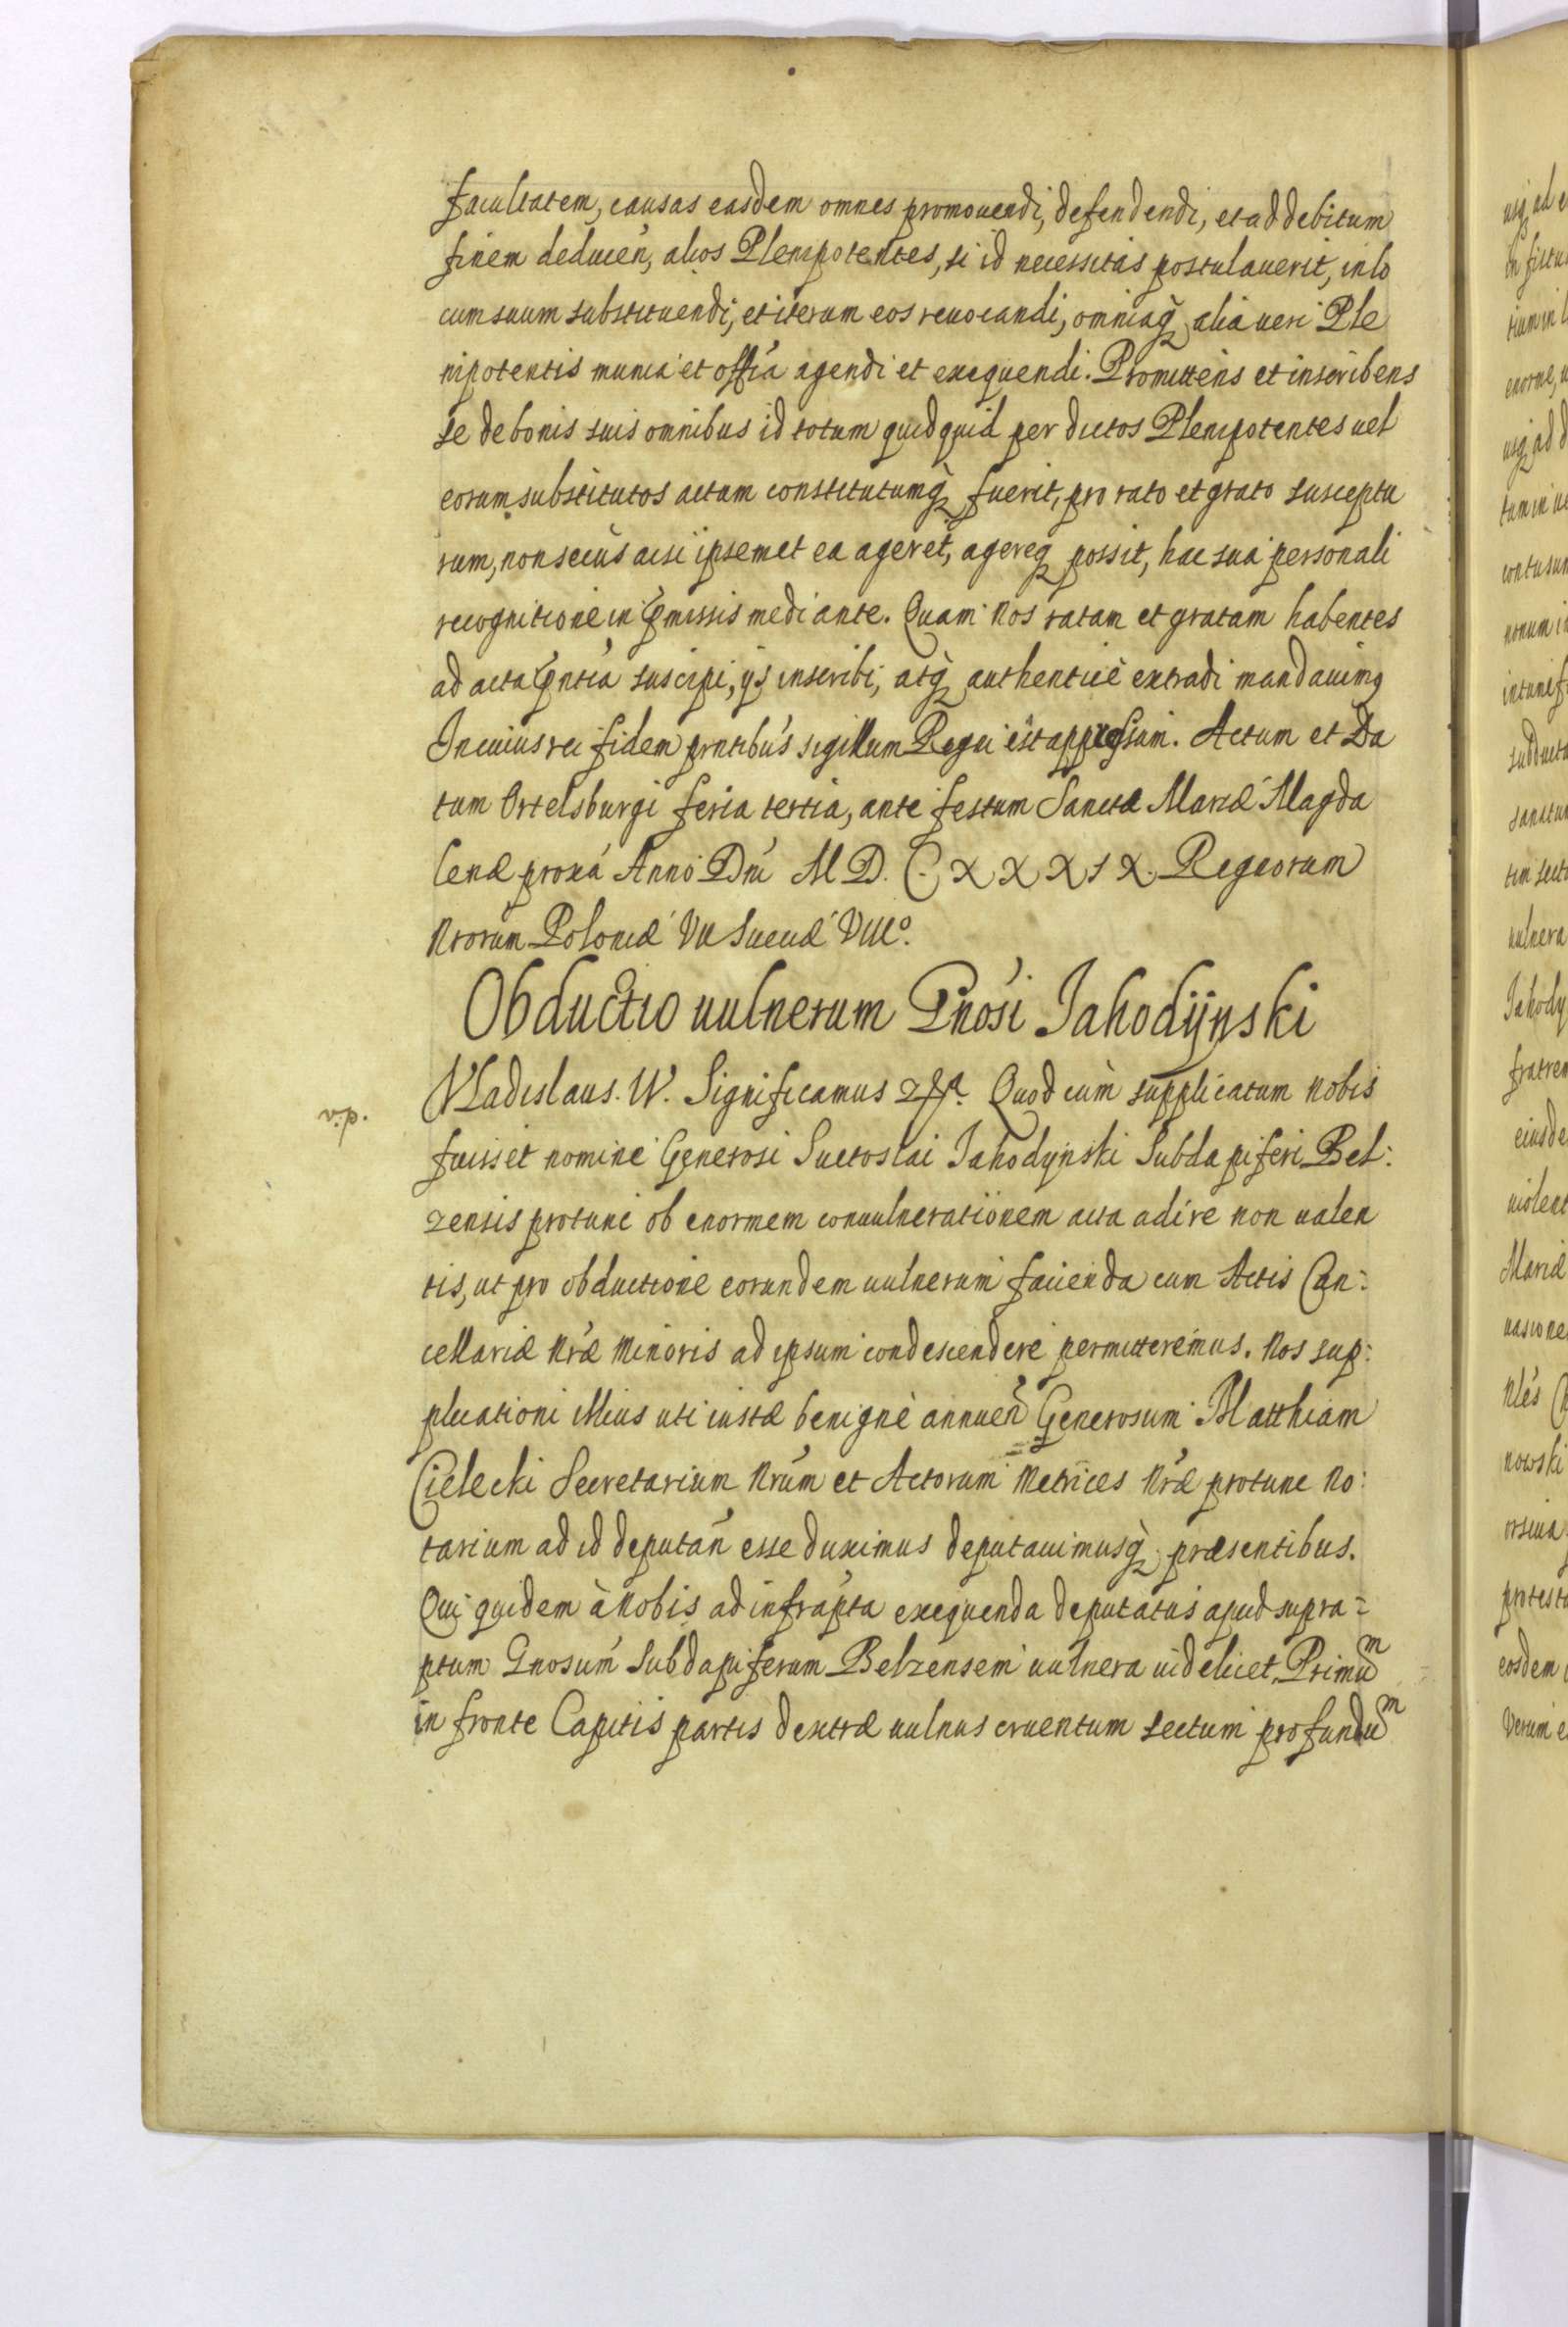 facultatem, causas easdem omnes promouendi, defendendi, et ad debitum
finem deducen, alios Plenipotentes, si id necessitas postulauerit, in lo
cum suum substituendi, et iterum eos reuocandi, omniaq̀ alia ueri Ple
nipotentis munia et offia agendi et exequendi. Promittens et inscribens
se de bonis suis omnibus id totum quidquid per dictos Plenipotentes uel
eorum substitutos actum constitutumq̀ fuerit, pro rato et grato susceptu
rum, non secus acsi ipsemet ea ageret, agereq possit, hac sua personali
recognitione in p̃missis mediante. Quam Nos ratam et gratam habentes
ad acta p̃ntia suscipi, ijs inscribi, atq̀ authenticè extradi mandauimq
In cuius rei fidem pntibus sigillum Regni est appressum. Actum et Da
tum Ortelsburgi feria tertia, ante festum Sanctæ Mariæ Magda
lenæ proxa Anno Dni M D. C. X X X I X. Regnorum
Nrorum Poloniæ VII Sueciæ VIIIº.
Obductio uulnerum Gnosi Jahodÿnski
Vladislaus. W. Significamus &ª. Quod cùm supplicatum Nobis
fuisset nomine Generosi Suetoslai Jahodynski Subdapiferi Bel:
zensis protunc ob enormem conuulnerationem acta adire non ualen
tis, ut pro obductione eorundem uulnerum facienda cum Actis Can:
cellariæ Nræ Minoris ad ipsum condescendere permitteremus. Nos sup:
plicationi illius uti iustæ benignè annuen Generosum Matthiam
Cielecki Secretarium Nrum et Actorum Metrices Nræ protunc No:
tarium ad id deputan esse duximus deputauimusq̀ præsentibus.
Qui quidem à Nobis ad infrapta exequenda deputatus apud supra=
ptum Gnosum Subdapiferum Belzensem uulnera uidelicet Primuᵐ
in fronte Capitis partis dextræ uulnus cruentum sectum profunduᵐ